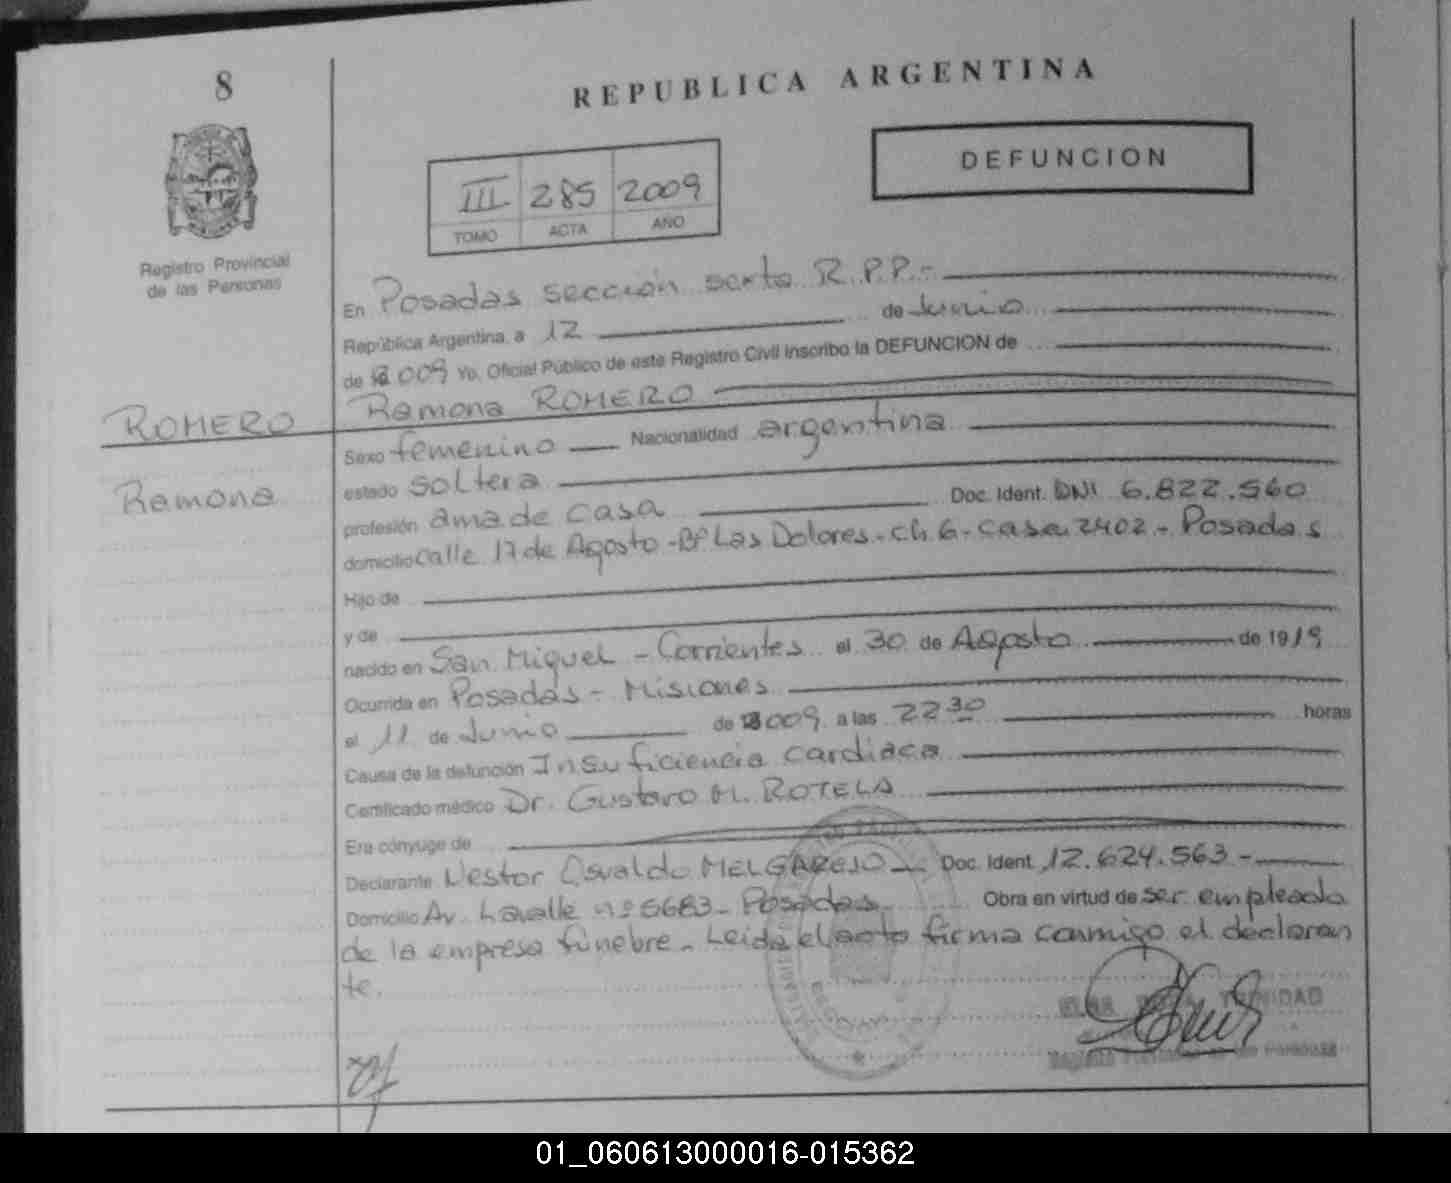 8
REPUBLICA ARGENTINA
DEFUNCION
III 285 2009
TOMO ACTA AÑO
Registro Provincial
de las Personas
En Posadas sección sexta R.P.P.-
República Argentina, a 12 de Junio
de 2009 Yo, Oficial Público de este Registro Civil inscribo la DEFUNCION de
ROMERO Ramona ROMERO
Sexo femenino Nacionalidad argentina
Ramona
estado soltera
profesión ama de casa Doc. Ident. DNI 6.822.560
domicilio Calle 17 de Agosto - Bº Las Dolores - ch. 6 - casa 2402 - Posadas
Hijo de
y de
nacido en San Miguel - Corrientes el 30 de Agosto de 1919
Ocurrida en Posadas - Misiones
el 11 de Junio de 2009 a las 22 30 horas
Causa de la defunción Insuficiencia cardiaca
Certificado médico Dr. Gustavo M. ROTELA
Era cónyuge de
Declarante Nestor Osvaldo MELGAREJO Doc. Ident. 12.624.563 -
Domicilio Av. Lavalle nº 6683 - Posadas Obra en virtud de ser empleado
de la empresa fúnebre - Leida el acta firma conmigo el declaran
te.
TRINIDAD
01_060613000016-015362